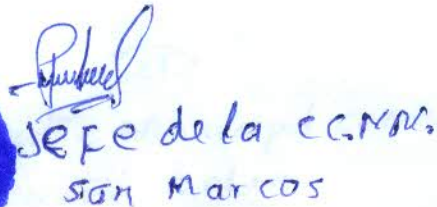 Jefe de la CC.NN.
San Marcos